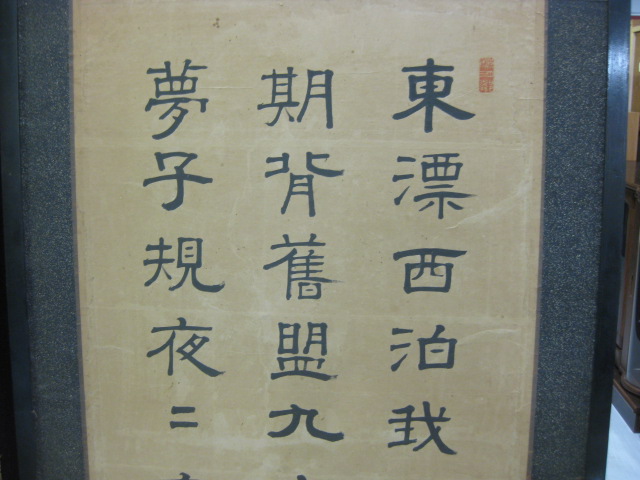 東漂西泊我
期背舊盟九
夢子規夜二